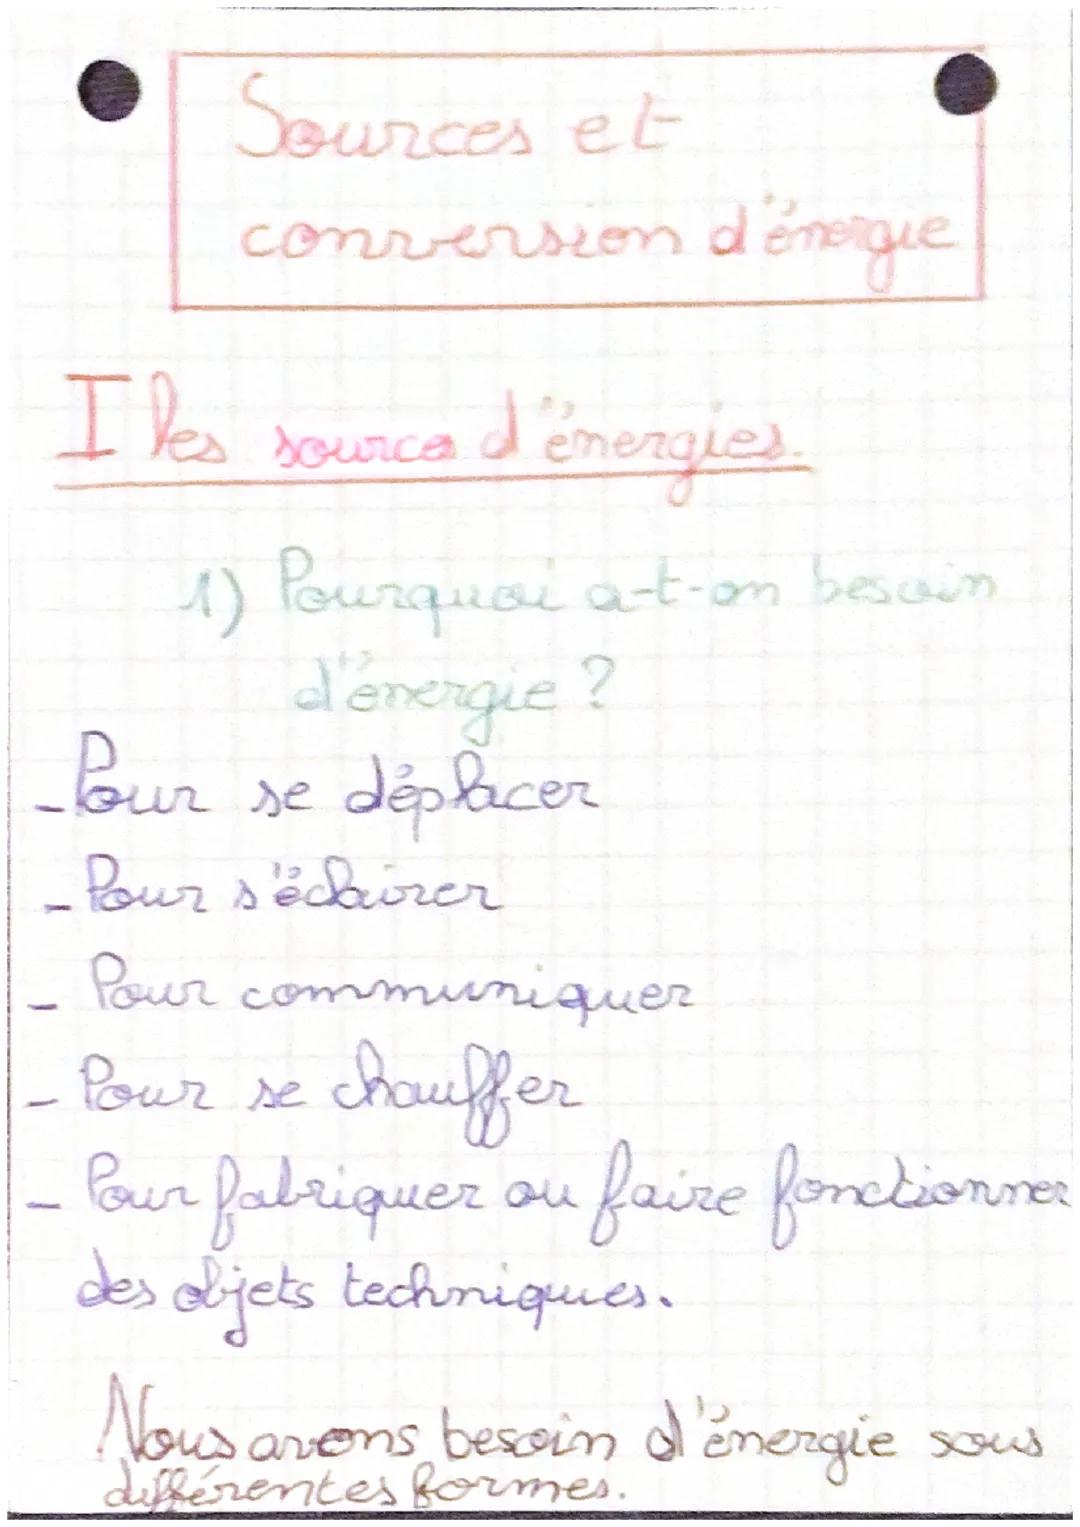 Sources et
conversion d'énergie
I les sources d'énergies.
1) Pourquoi a-t-on besoin
d'énergie ?
- Pour se déplacer
- Pour s'éclairer
- Pour communiquer
- Pour se chauffer
- Pour fabriquer ou faire fonctionner
des objets techniques.
Nous avons besoin d'énergie sous
différentes formes.